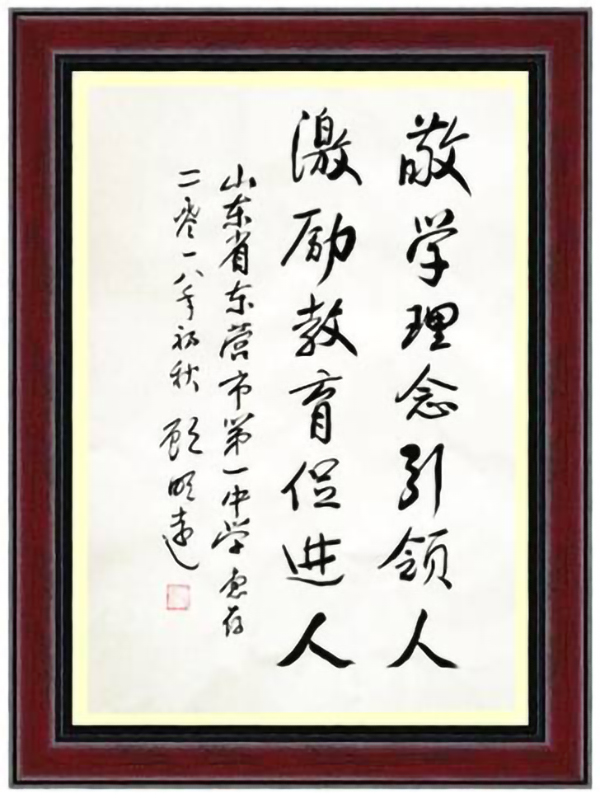 敬学理念引领人
激励教育促进人
山东省东营市第一中学惠存
二零一八年初秋 顾明远